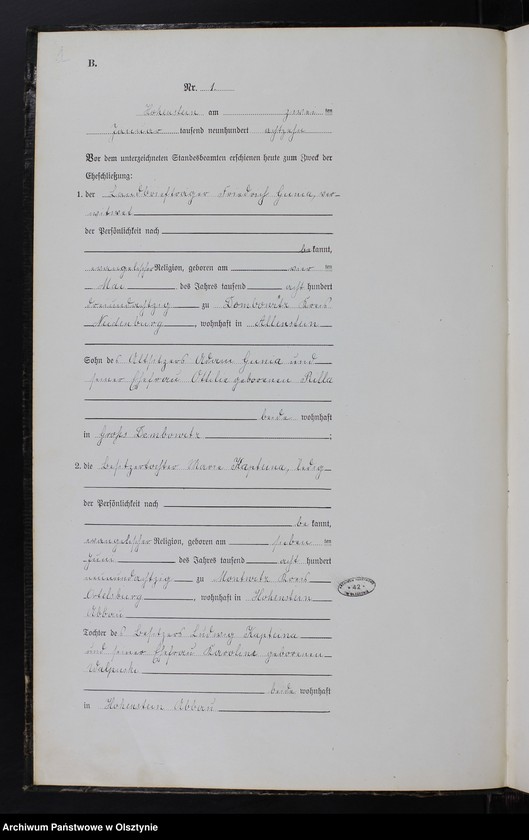 B.
Nr. 1.
Hohenstein am zwei ten
Januar tausend neunhundert achtzehn
Vor dem unterzeichneten Standesbeamten erschienen heute zum Zweck der
Eheschließung:
1. der Landbriefträger Friedrich Gunia, ver-
witwet
der Persönlichkeit nach
be kannt,
evangelischer Religion, geboren am vier ten
Mai des Jahres tausend acht hundert
dreiundachtzig zu Dembowitz Kreis
Neidenburg, wohnhaft in Allenstein
Sohn des Altsitzers Adam Gunia und
seiner Ehefrau Ottilie geborenen
beide wohnhaft
in Groß Dembowitz;
2. die Besitzertochter Marie Kaptuina, ledig
der Persönlichkeit nach
be kannt,
evangelischer Religion, geboren am sieben ten
Juni des Jahres tausend acht hundert
neunundachtzig zu Montwitz Kreis
Ortelsburg, wohnhaft in Hohenstein
Abbau
Tochter des Besitzers Ludwig Kaptuina
und seiner Ehefrau Karoline geborenen
beide wohnhaft
in Hohenstein Abbau
42
Archiwum Państwowe w Olsztynie